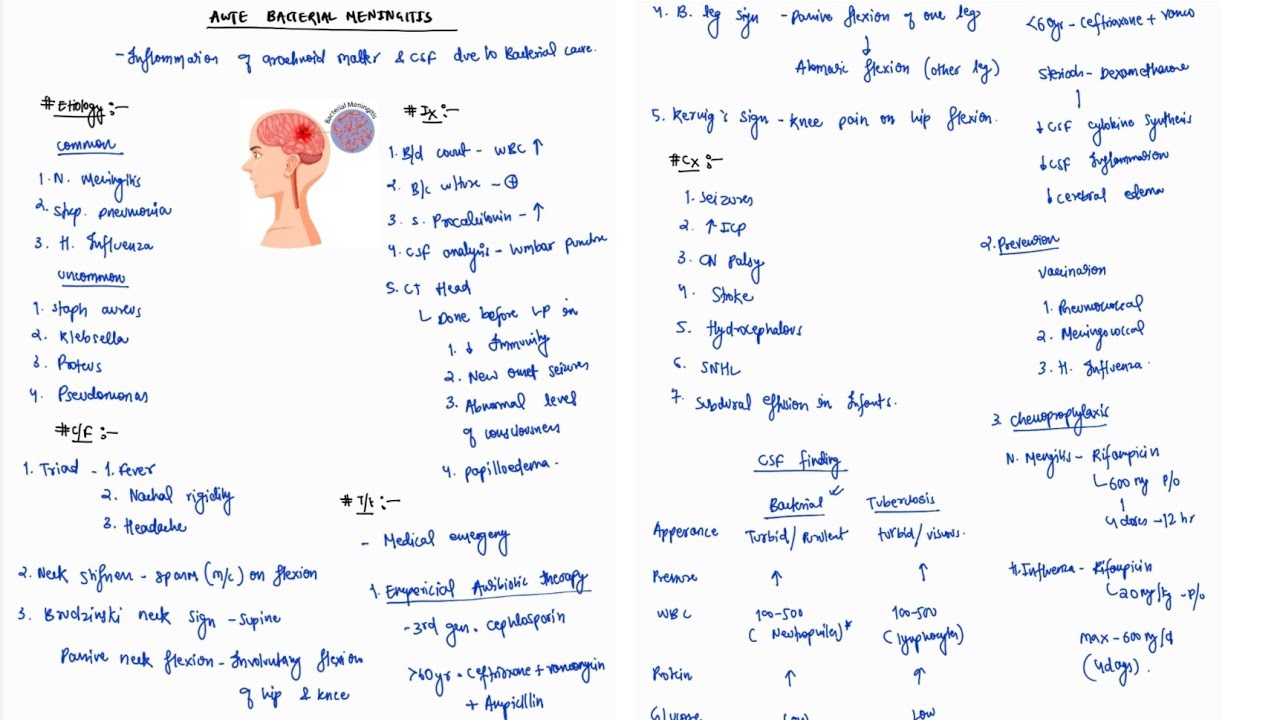 ACUTE BACTERIAL MENINGITIS
- Inflammation of arachnoid matter & CSF due to Bacterial cause.
# Etiology :-
common
1. N. Meningitis
2. Strep. pneumonia
3. H. Influenza
uncommon
1. Staph aureus
2. Klebsella
3. Proteus
4. Pseudomonas
# C/F :-
1. Triad - 1. Fever
2. Nuchal rigidity
3. Headache
2. Neck stifness - spasm (m/c) on flexion
3. Brudzinski neck sign - supine
Passive neck flexion - Involuntary flexion
of hip & knee
Bacterial Meningitis
# Ix :-
1. B/d count - WBC ↑
2. B/c culture - ⊕
3. S. Procalcitonin - ↑
4. CSF analysis - lumbar puncture
5. CT Head
└ Done before LP in
1. ↓ Immunity
2. New onset seizures
3. Abnormal level
of consciousness
4. papilloedema.
# T/t :-
- Medical emergency
1. Emperical Antibiotic therapy
- 3rd gen. cephlosporin
>60yr - ceftriaxone + vancomycin
+ Ampicillin
4. B. leg sign - Passive flexion of one leg
↓
flexion (other leg)
5. Kernig's sign - knee pain on hip flexion.
# Cx :-
1. Seizures
2. ↑ ICP
3. CN palsy
4. Stroke
5. Hydrocephalous
6. SNHL
7. Subdural effusion in Infants.
CSF finding
Bacterial ✓ Tuberculosis
Apperance Turbid/Purulent turbid/viscous.
Pressure ↑ ↑
WBC 100-500 100-500
(Neutrophiles)* (lymphocytes)
Protein ↑ ↑
Glucose Low Low
<60yrs - Ceftriaxone + vanco
Steriods - Dexamethasone
↓ CSF cytokine synthesis
↓ CSF Inflammation
↓ cerebral edema
2. Prevention
vaccination
1. Pneumococcal
2. Meningococcal
3. H. Influenza.
3. Chemoprophylaxis
N. Mengitis - Rifampicin
└ 600 mg P/o
4 doses - 12 hr
H. Influenza - Rifampicin
└ 20mg/kg - P/o
max - 600 mg/d
(4 days).